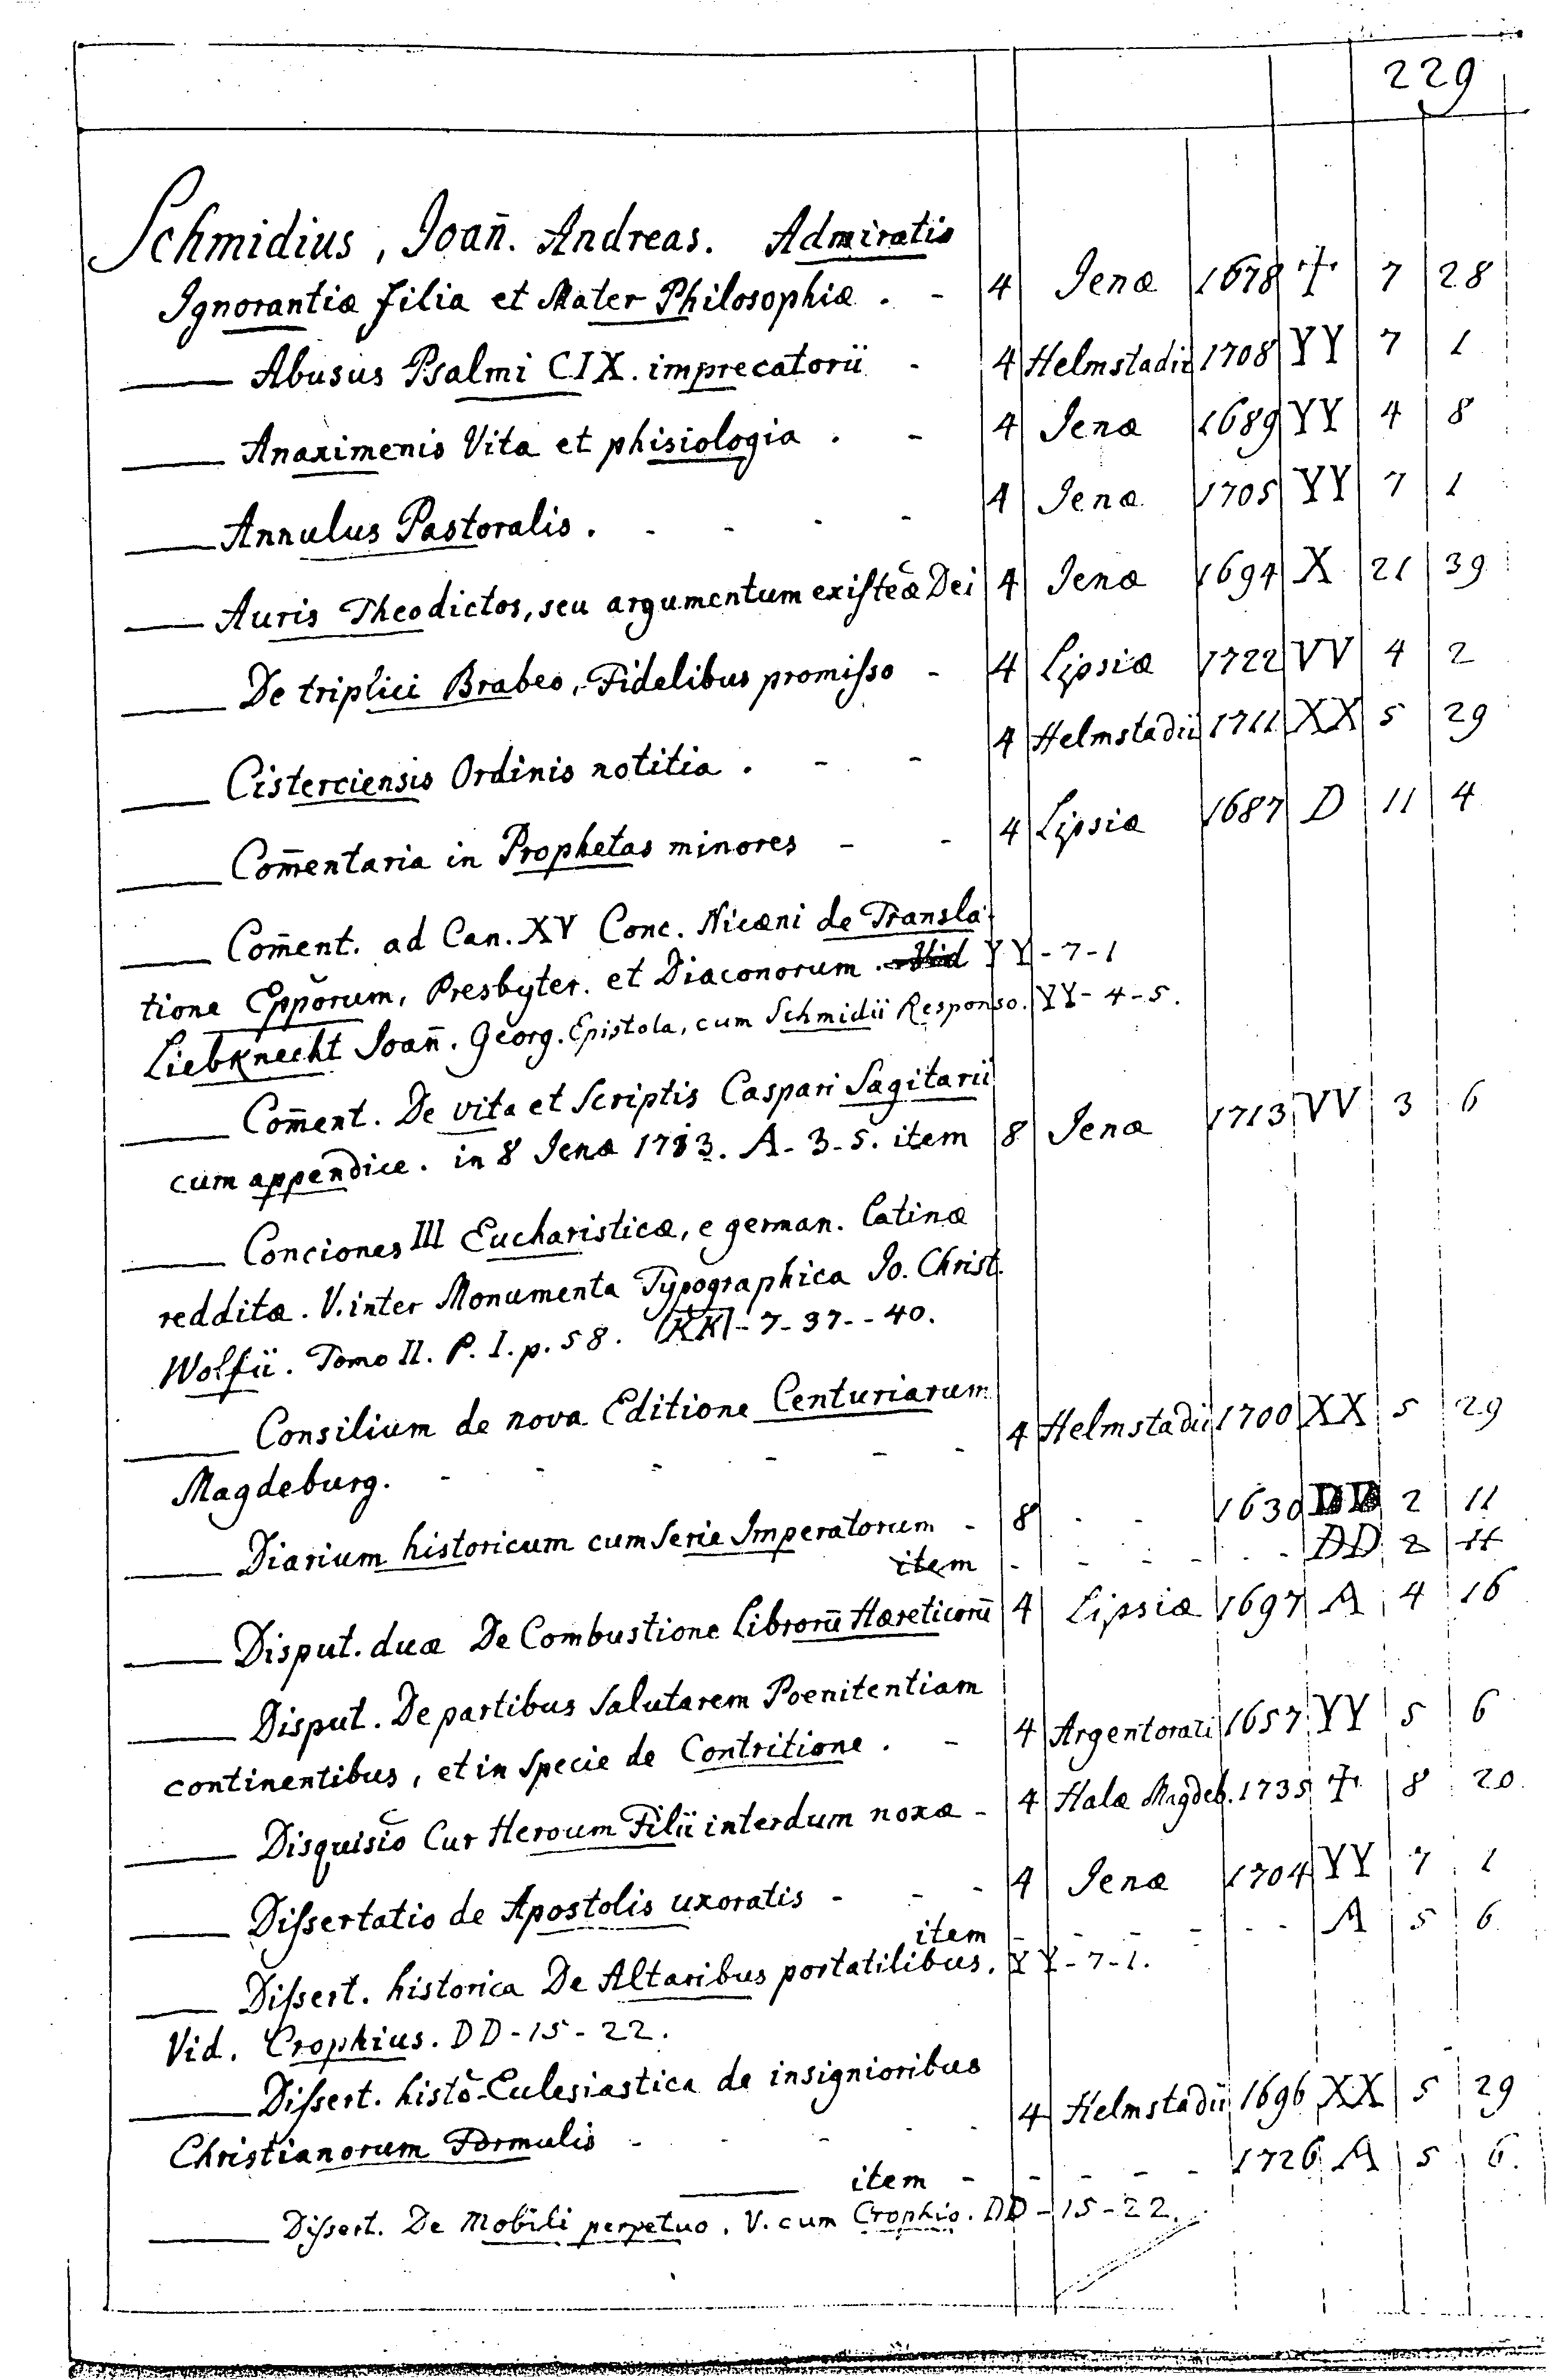 229
Schmidius, Joan̄. Andreas. Admiratio
Ignorantiæ filia et Mater Philosophiæ . - 4 Jenæ 1678 Ⳁ 7 28
—— Abusus Psalmi CIX. imprecatorii - 4 Helmstadii 1708 YY 7 1
—— Anaximenis Vita et phisiologia . - 4 Jenæ 1689 YY 4 8
—— Annulus Pastoralis . - - - - 4 Jenæ 1705 YY 7 1
—— Auris Theodictos, seu argumentum existeæ Dei 4 Jenæ 1694 X 21 39
—— De triplici Brabeo, Fidelibus promisso - 4 Lipsiæ 1722 VV 4 2
—— Cisterciensis Ordinis notitia . - - 4 Helmstadii 1711 XX 5 29
—— Com̄entaria in Prophetas minores - - 4 Lipsiæ 1687 D 11 4
—— Com̄ent. ad Can. XV Conc. Nicæni de Transla
tione Epporum, Presbyter. et Diaconorum . Vid YY-7-1
Liebknecht Joan̄. Georg. Epistola, cum Schmidii Responso. YY-4-5.
—— Com̄ent. De vita et Scriptis Caspari Sagitarii
cum appendice. in 8 Jenæ 1713. A-3-5. item 8 Jenæ 1713 VV 3 6
—— Conciones III Eucharisticæ, e german. Latinæ
redditæ. V. inter Monumenta Typographica Jo. Christ.
Wolfii. Tomo II. P. I. p. 58. KK-7-37--40.
—— Consilium de nova Editione Centuriarum
Magdeburg. - - - - - - 4 Helmstadii 1700 XX 5 29
—— Diarium historicum cum Serie Imperatorum - 8 - - 1630 DD 2 11
item - - - - - - DD 2 11
—— Disput. duæ De Combustione Librorū Hæreticorū 4 Lipsiæ 1697 A 4 16
—— Disput. De partibus Salutarem Poenitentiam
continentibus, et in Specie de Contritione . - 4 Argentorati 1657 YY 5 6
—— Disquisio Cur Heroum Filii interdum noxæ - 4 Halæ Magdeb. 1735 Ⳁ 8 20
—— Dissertatio de Apostolis uxoratis - - - 4 Jenæ 1704 YY 7 1
item - - - - - - A 5 6
—— Dissert. historica De Altaribus portatilibus. YY-7-1.
Vid. Crophius. DD-15-22.
—— Dissert. histo-Eulesiastica de insignioribus
Christianorum Formulis - - - - 4 Helmstadii 1696 XX 5 29
—— item - - - - - 1726 A 5 6.
—— Dissert. De Mobili perpetuo. V. cum Crophio. DD-15-22.